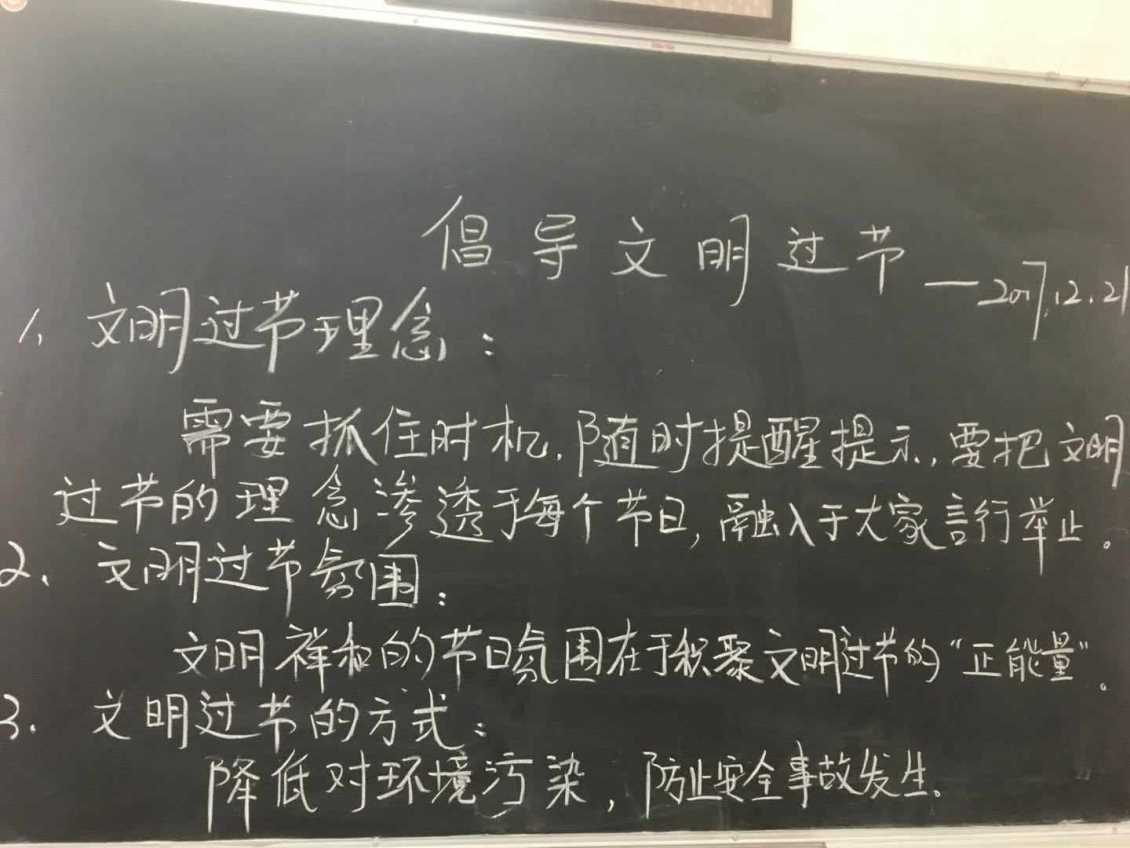 倡导文明过节
—2017.12.21
1、文明过节理念:
需要抓住时机,随时提醒提示,要把文明
过节的理念渗透于每个节日,融入于大家言行举止。
2、文明过节氛围:
文明祥和的节日氛围在于积聚文明过节的“正能量”。
3.文明过节的方式:
降低对环境污染,防止安全事故发生.